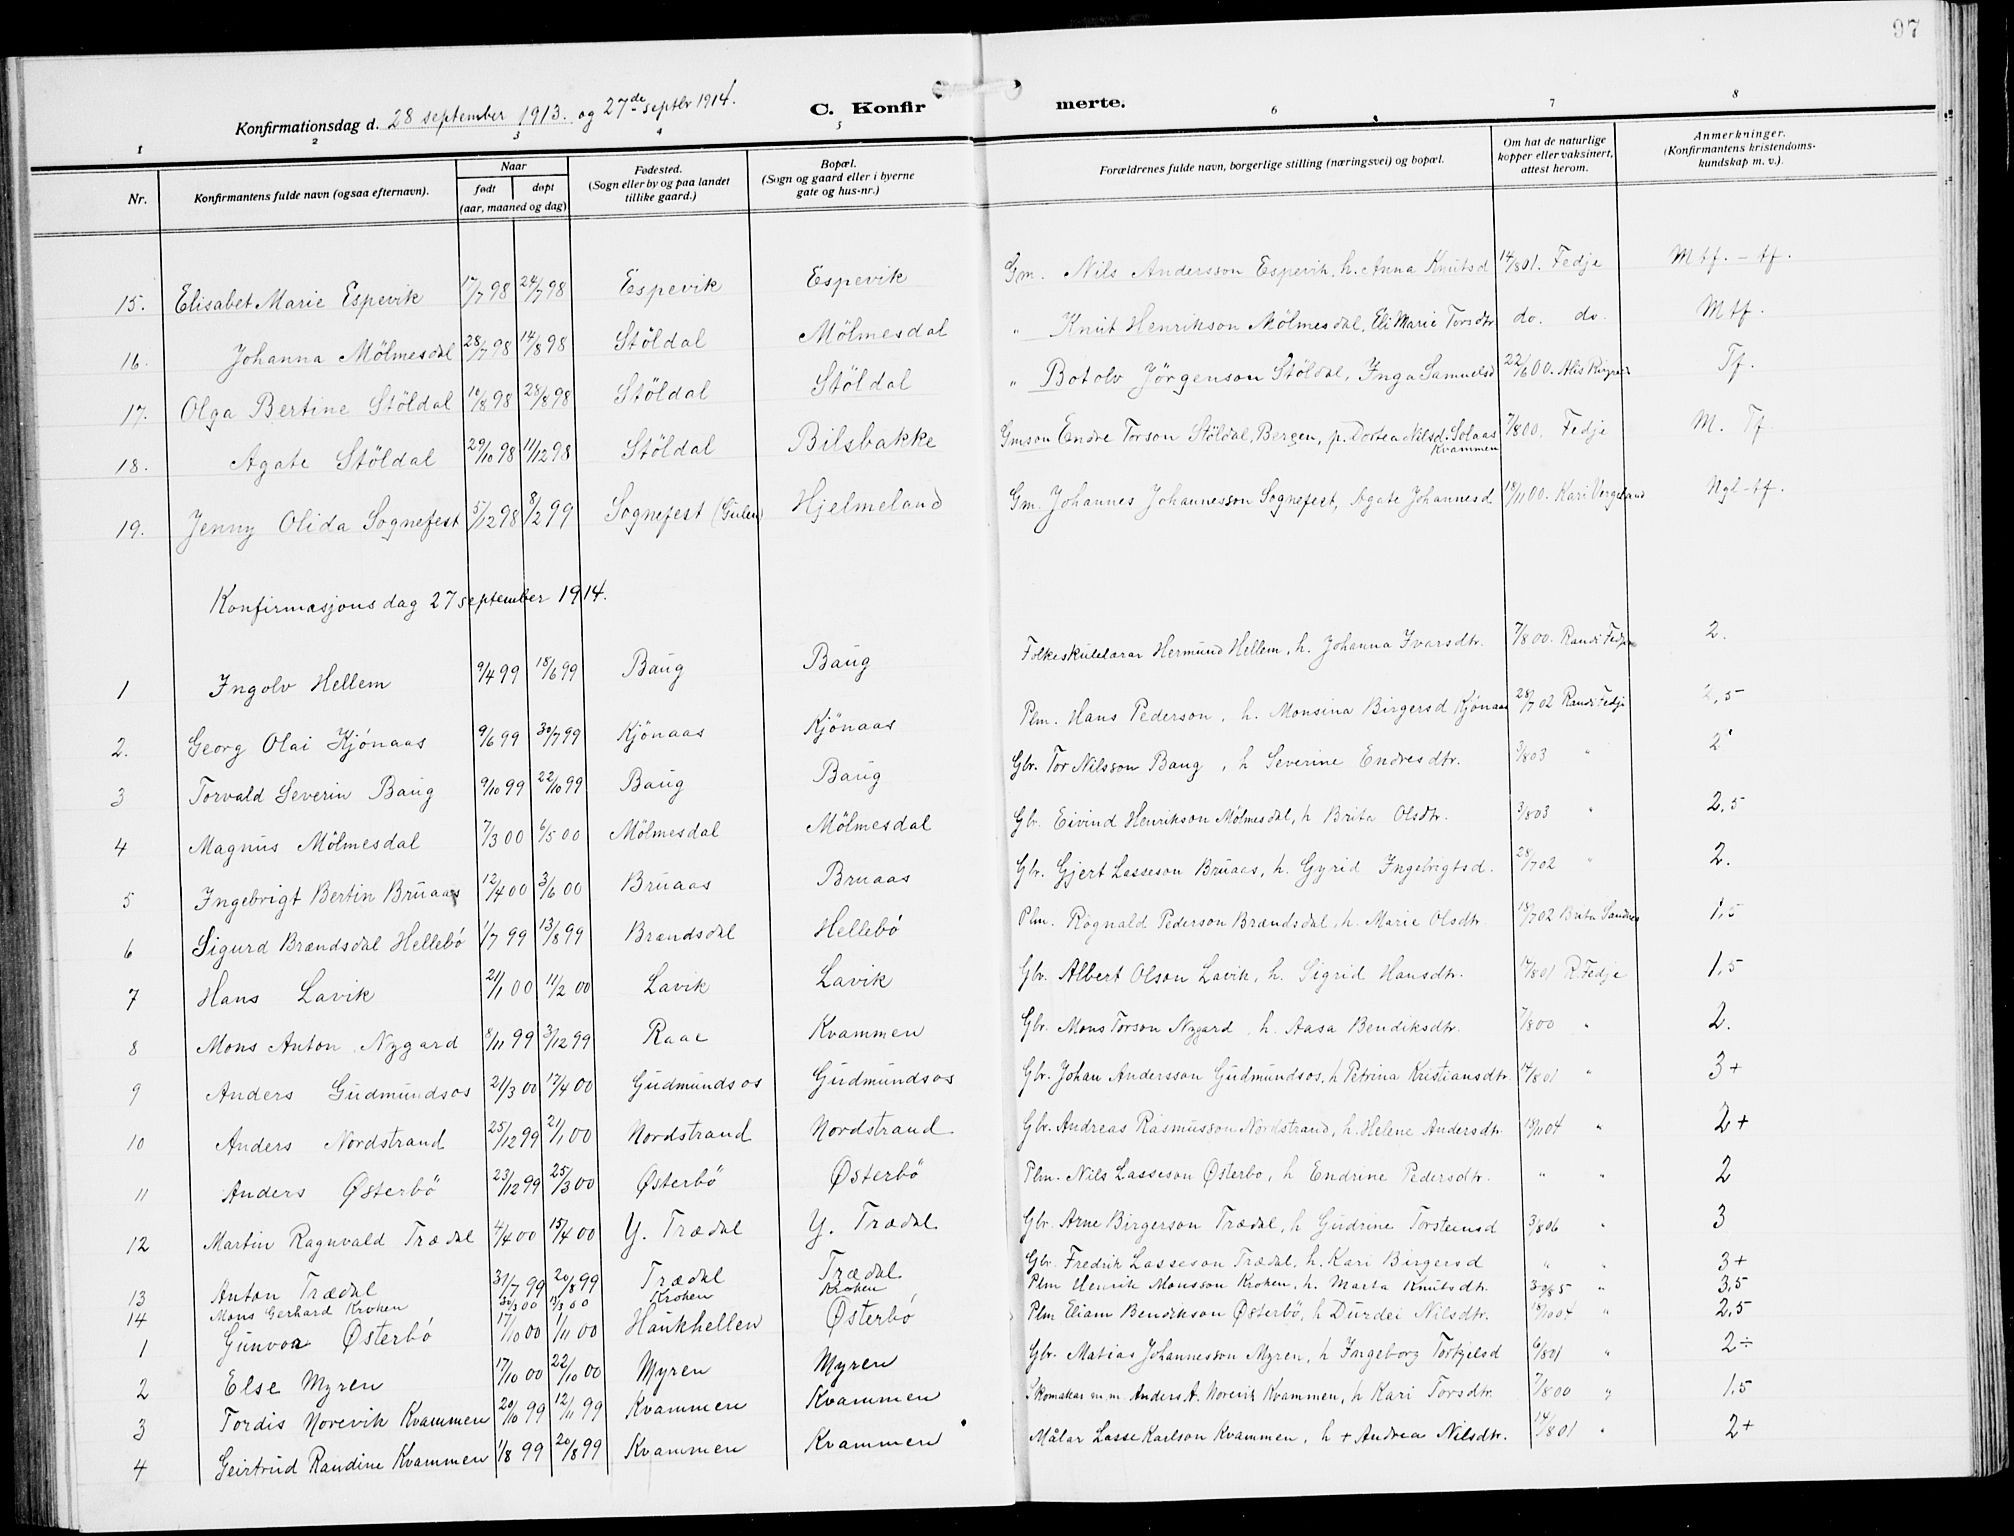 97
Konfirmationsdag d. 28 september 1913. og 27de septbr 1914.
C. Konfirmerte.
1 2 3 4 5 6 7 8
Nr. Konfirmantens fulde navn (ogsaa efternavn). Naar født døpt (aar, maaned og dag) Fødested. (Sogn eller by og paa landet tillike gaard.) Bopæl. (Sogn og gaard eller i byerne gate og hus-nr.) Forældrenes fulde navn, borgerlige stilling (næringsvei) og bopæl. Om hat de naturlige kopper eller vaksinert, attest herom. Anmerkninger. (Konfirmantens kristendoms-kundskap m. v.).
15. Elisabet Marie Espevik 17/7 98 24/7 98 Espevik Espevik Gm. Nils Andersson Espevik, h. Anna Knutsd 14/8 01. Fedje Mtf. - tf.
16. Johanna Mölmesdal 28/7 98 14/8 98 Stöldal Mölmesdal " Knut Henrikson Mölmesdal, Eli Marie Torsdtr do. do. Mtf.
17. Olga Bertine Stöldal 10/8 98 28/8 98 Stöldal Stöldal " Botolv Jörgenson Stöldal, Inga Samuelsd 22/6 00. Tf.
18. Agate Stöldal 29/10 98 11/12 98 Stöldal Bilsbakke Gmson Endre Torson Stöldal, Bergen, p. Dortea Nilsd. Solaas Kvammen 7/8 00. Fedje M. Tf
19. Jenny Olida Sognefest 5/12 98 8/2 99 Sognefest (Gulen) Hjelmeland Gm. Johannes Johannesson Sognefest, Agate Johannesd 18/11 00. Kari Vergeland Ngl-tf.
Konfirmasjonsdag 27 september 1914.
1 Ingolv Hellem 9/4 99 18/6 99 Baug Baug Folkeskulelærar Hermund Hellem, h. Johanna Ivarsdtr. 7/8 00. Randi Fedje 2.
2. Georg Olai Kjönaas 9/6 99 30/7 99 Kjönaas Kjönaas Plm. Hans Pederson, h. Monsina Birgersd Kjönaas 28/7 02 Randi Fedje 2,5
3 Torvald Severin Baug 9/10 99 22/10 99 Baug Baug Gbr. Tor Nilsson Baug, h Severine Endresdtr. 3/8 03 " 2
4 Magnus Mölmesdal 7/3 00 6/5 00 Mölmesdal Mölmesdal Gbr. Eivind Henrikson Mölmesdal, h Brita Olsdtr. 3/8 03 " 2,5
5 Ingebrigt Bertin Bruaas 12/4 00 3/6 00 Bruaas Bruaas Gbr. Gjert Lasseson Bruaas, h. Gyrid Ingebrigtsd. 28/7 02 " 2.
6 Sigurd Brændsdal Hellebö 1/7 99 13/8 99 Brændsdal Hellebö Plm. Rognald Pederson Brændsdal, h. Marie Olsdtr. 18/7 02 Brita Sandnes 1,5
7 Hans Lavik 21/1 00 11/2 00 Lavik Lavik Gbr. Albert Olson Lavik, h. Sigrid Hansdtr. 14/8 01 R. Fedje 1,5
8 Mons Anton Nygard 8/11 99 3/12 99 Raae Kvammen Gbr. Mons Torson Nygard, h. Aasa Bendiksdtr. 7/8 00 " 2.
9 Anders Gudmundsos 21/3 00 17/4 00 Gudmundsos Gudmundsos Gbr. Johan Andersson Gudmundsos, h Petrina Kristiansdtr. 14/8 01 " 3+
10 Anders Nordstrand 25/12 99 21/1 00 Nordstrand Nordstrand Gbr. Andreas Rasmusson Nordstrand, h. Helene Andersdtr 18/11 04 " 2+
11 Anders Østerbö 23/12 99 25/3 00 Østerbö Østerbö Plm. Nils Lasseson Østerbö, h Endrine Pedersdtr. " " 2
12 Martin Ragnvald Trædal 4/4 00 15/4 00 Y. Trædal Y. Trædal Gbr. Arne Birgerson Trædal, h Gudrine Torsteinsd 3/8 06 " 3
13 Anton Trædal 31/7 99 20/8 99 Trædal Trædal Gbr. Fredrik Lasseson Trædal, h. Kari Birgersd " " 3+
14 Mons Gerhard Kroken Kroken Kroken Plm Henrik Monsson Kroken, h. Marta Knutsdtr. " 3,5
1 Gunvor Østerbö 17/10 00 1/11 00 Haukhellen Østerbö Plm Eliam Bendikson Østerbö, h Durdei Nilsdtr. 18/11 04 " 2,5
2 Else Myren 17/10 00 22/10 00 Myren Myren Gbr. Matias Johannesson Myren, h Ingeborg Torkjelsd 6/8 01 " 2÷
3 Tordis Norevik Kvammen 20/10 99 12/11 99 Kvammen Kvammen Skomakar m.m. Anders A. Norevik Kvammen, h Kari Torsdtr. 7/8 00 " 1,5
4 Geirtrud Randine Kvammen 1/8 99 20/8 99 Kvammen Kvammen Målar Lasse Karlson Kvammen, h + Andrea Nilsdtr. 14/8 01 " 2+